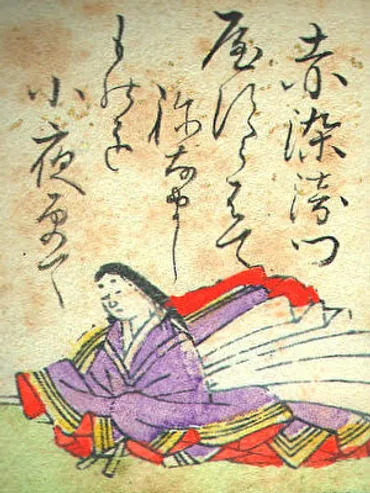 赤染衛門
屋須らはて
祢なまし
ものを
小夜更て